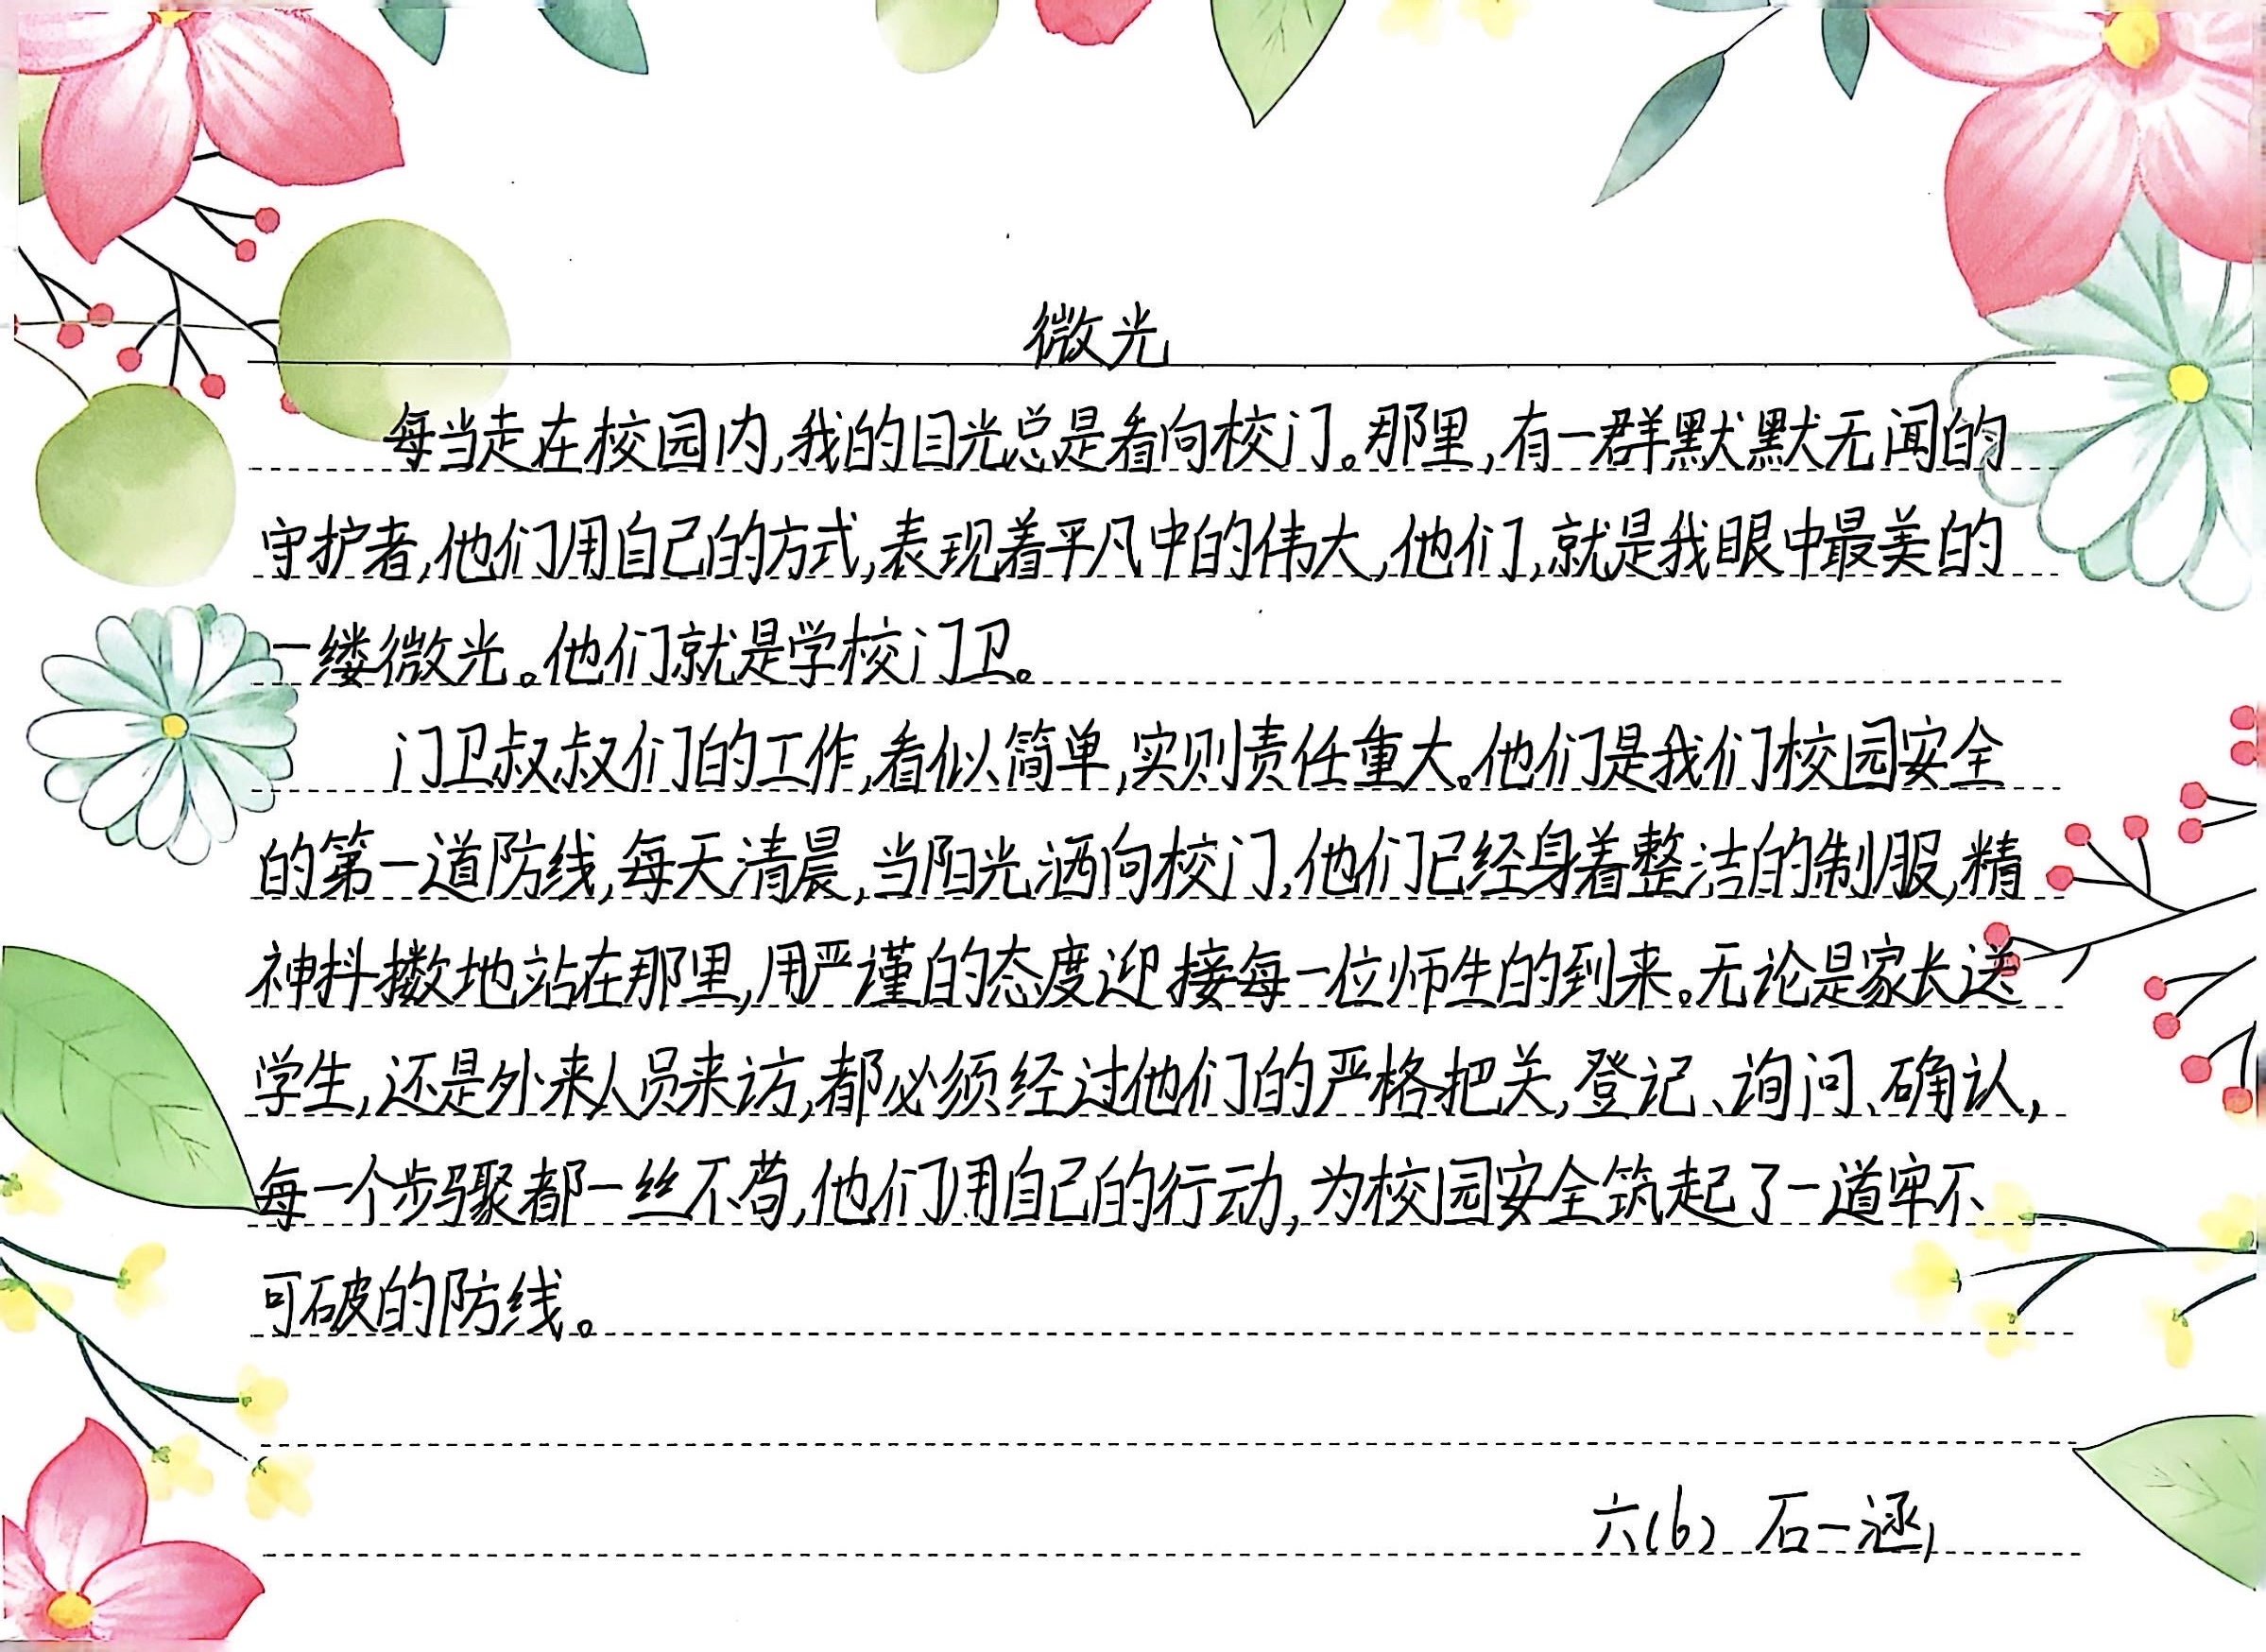 微光
每当走在校园内,我的目光总是看向校门。那里,有一群默默无闻的
守护者,他们用自己的方式,表现着平凡中的伟大,他们,就是我眼中最美的
一缕微光。他们就是学校门卫。
门卫叔叔们的工作,看似简单,实则责任重大。他们是我们校园安全
的第一道防线,每天清晨,当阳光洒向校门,他们已经身着整洁的制服,精
神抖擞地站在那里,用严谨的态度迎接每一位师生的到来。无论是家长送
学生,还是外来人员来访,都必须经过他们的严格把关,登记、询问、确认,
每一个步骤都一丝不苟,他们用自己的行动,为校园安全筑起了一道牢不
可破的防线。
六(6) 石一涵